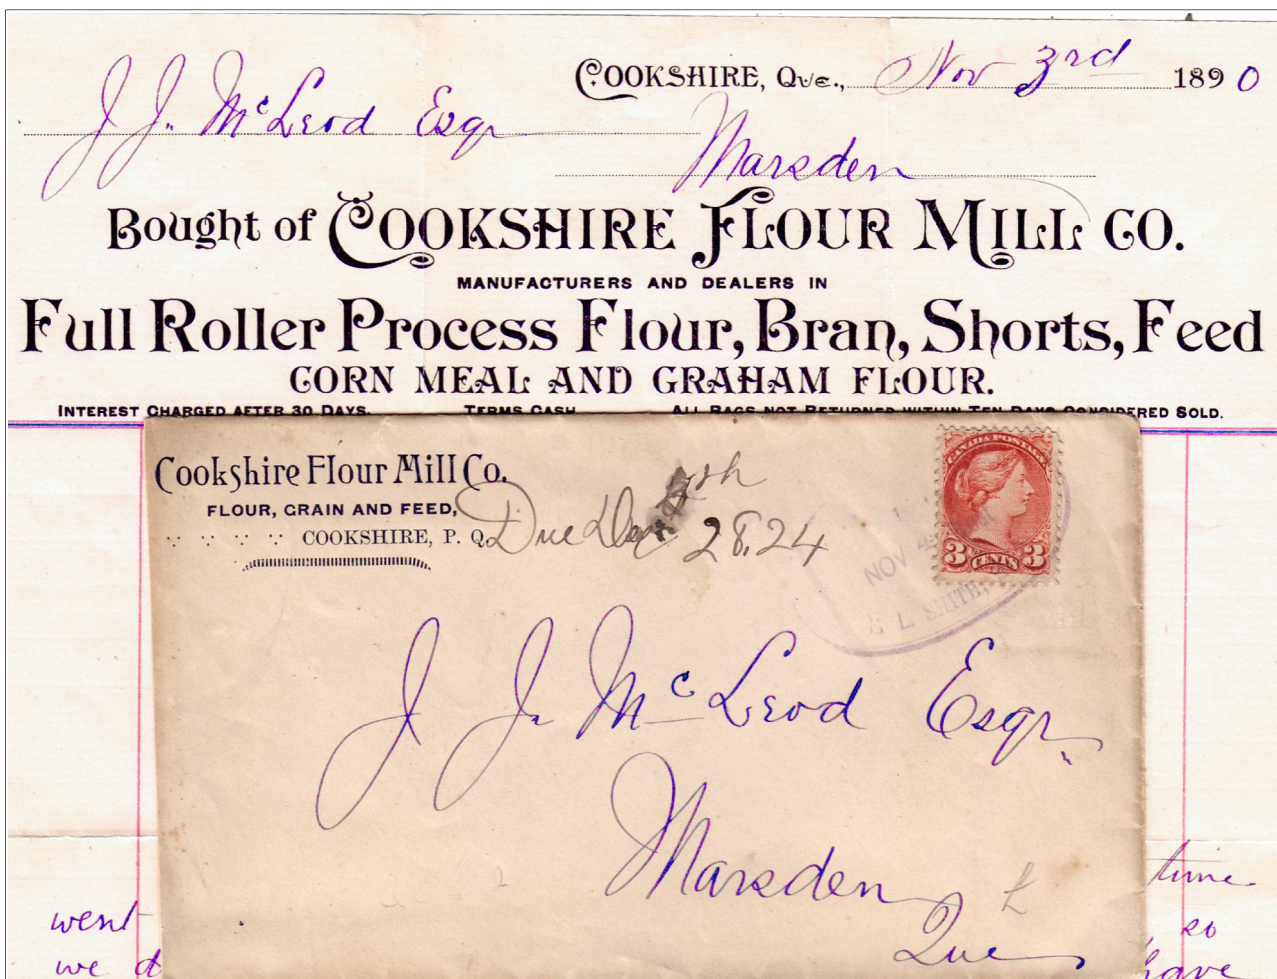 COOKSHIRE, QUE., Nov 3rd 1890
J. J. McLeod Esqr
Marsden
Bought of COOKSHIRE FLOUR MILL CO.
MANUFACTURERS AND DEALERS IN
Full Roller Process Flour, Bran, Shorts, Feed
CORN MEAL AND GRAHAM FLOUR.
INTEREST CHARGED AFTER 30 DAYS. TERMS CASH. ALL BAGS NOT RETURNED WITHIN TEN DAYS CONSIDERED SOLD.
Cookshire Flour Mill Co.
FLOUR, GRAIN AND FEED,
COOKSHIRE, P. Q.
Due 28.24
CANADA POSTAGE
3 CENTS 3
NOV 4
L. SMITH,
J. J. McLeod Esqr
Marsden
Que
time
went so
we d have